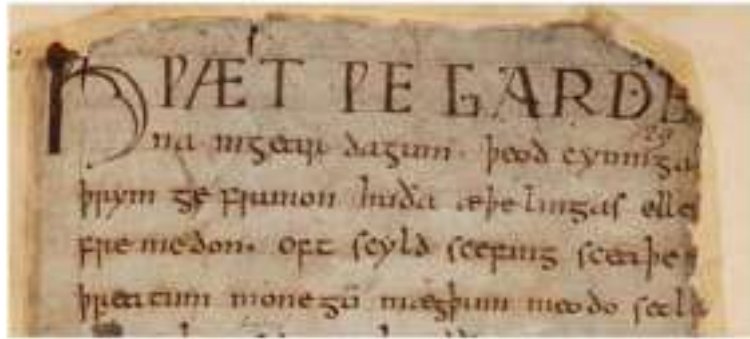 HǷÆT ǷE GARDE
na ingear dagum. þeod cyninga
þrym ge frunon huða æþelingas elle
fremedon. oft scyld scefing sceaþe
þreatum monegū mægþum meodo setla